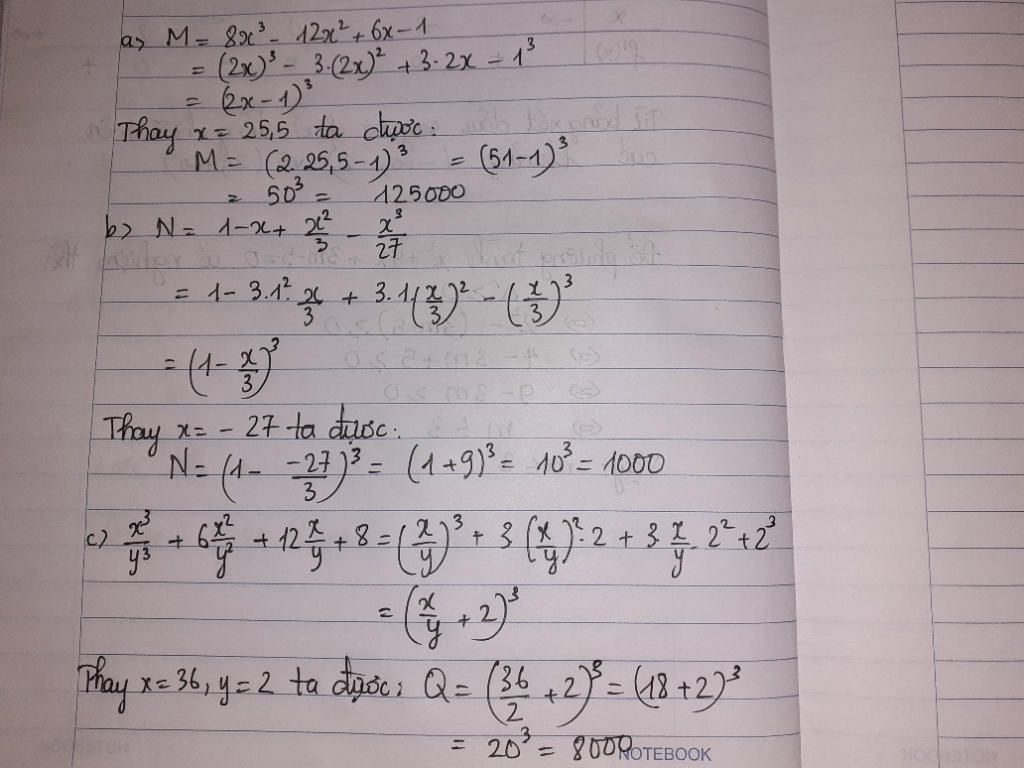 a> M = 8x³ - 12x² + 6x - 1
= (2x)³ - 3.(2x)² + 3.2x - 1³
= (2x - 1)³
Thay x = 25,5 ta được:
M = (2.25,5 - 1)³ = (51-1)³
= 50³ = 125000
b> N = 1 - x + x²/3 - x³/27
= 1 - 3.1². x/3 + 3.1(x/3)² - (x/3)³
= (1 - x/3)³
Thay x = - 27 ta được:
N = (1 - -27/3)³ = (1+9)³ = 10³ = 1000
c) x³/y³ + 6x²/y² + 12x/y + 8 = (x/y)³ + 3(x/y)².2 + 3x/y.2² + 2³
= (x/y + 2)³
Thay x = 36, y = 2 ta được: Q = (36/2 + 2)³ = (18 + 2)³
= 20³ = 8000
NOTEBOOK